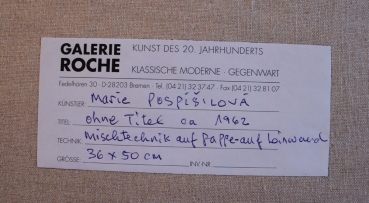 GALERIE ROCHE
KUNST DES 20. JAHRHUNDERTS
KLASSISCHE MODERNE · GEGENWART
Fedelhören 30 · D-28203 Bremen · Tel. (04 21) 32 37 47 · Fax (04 21) 32 81 07
KÜNSTLER: Marie POSPÍŠILOVÁ
TITEL: ohne Titel ca 1962
TECHNIK: Mischtechnik auf Pappe-auf Leinwand
GRÖSSE: 36 x 50 cm INV.-NR.